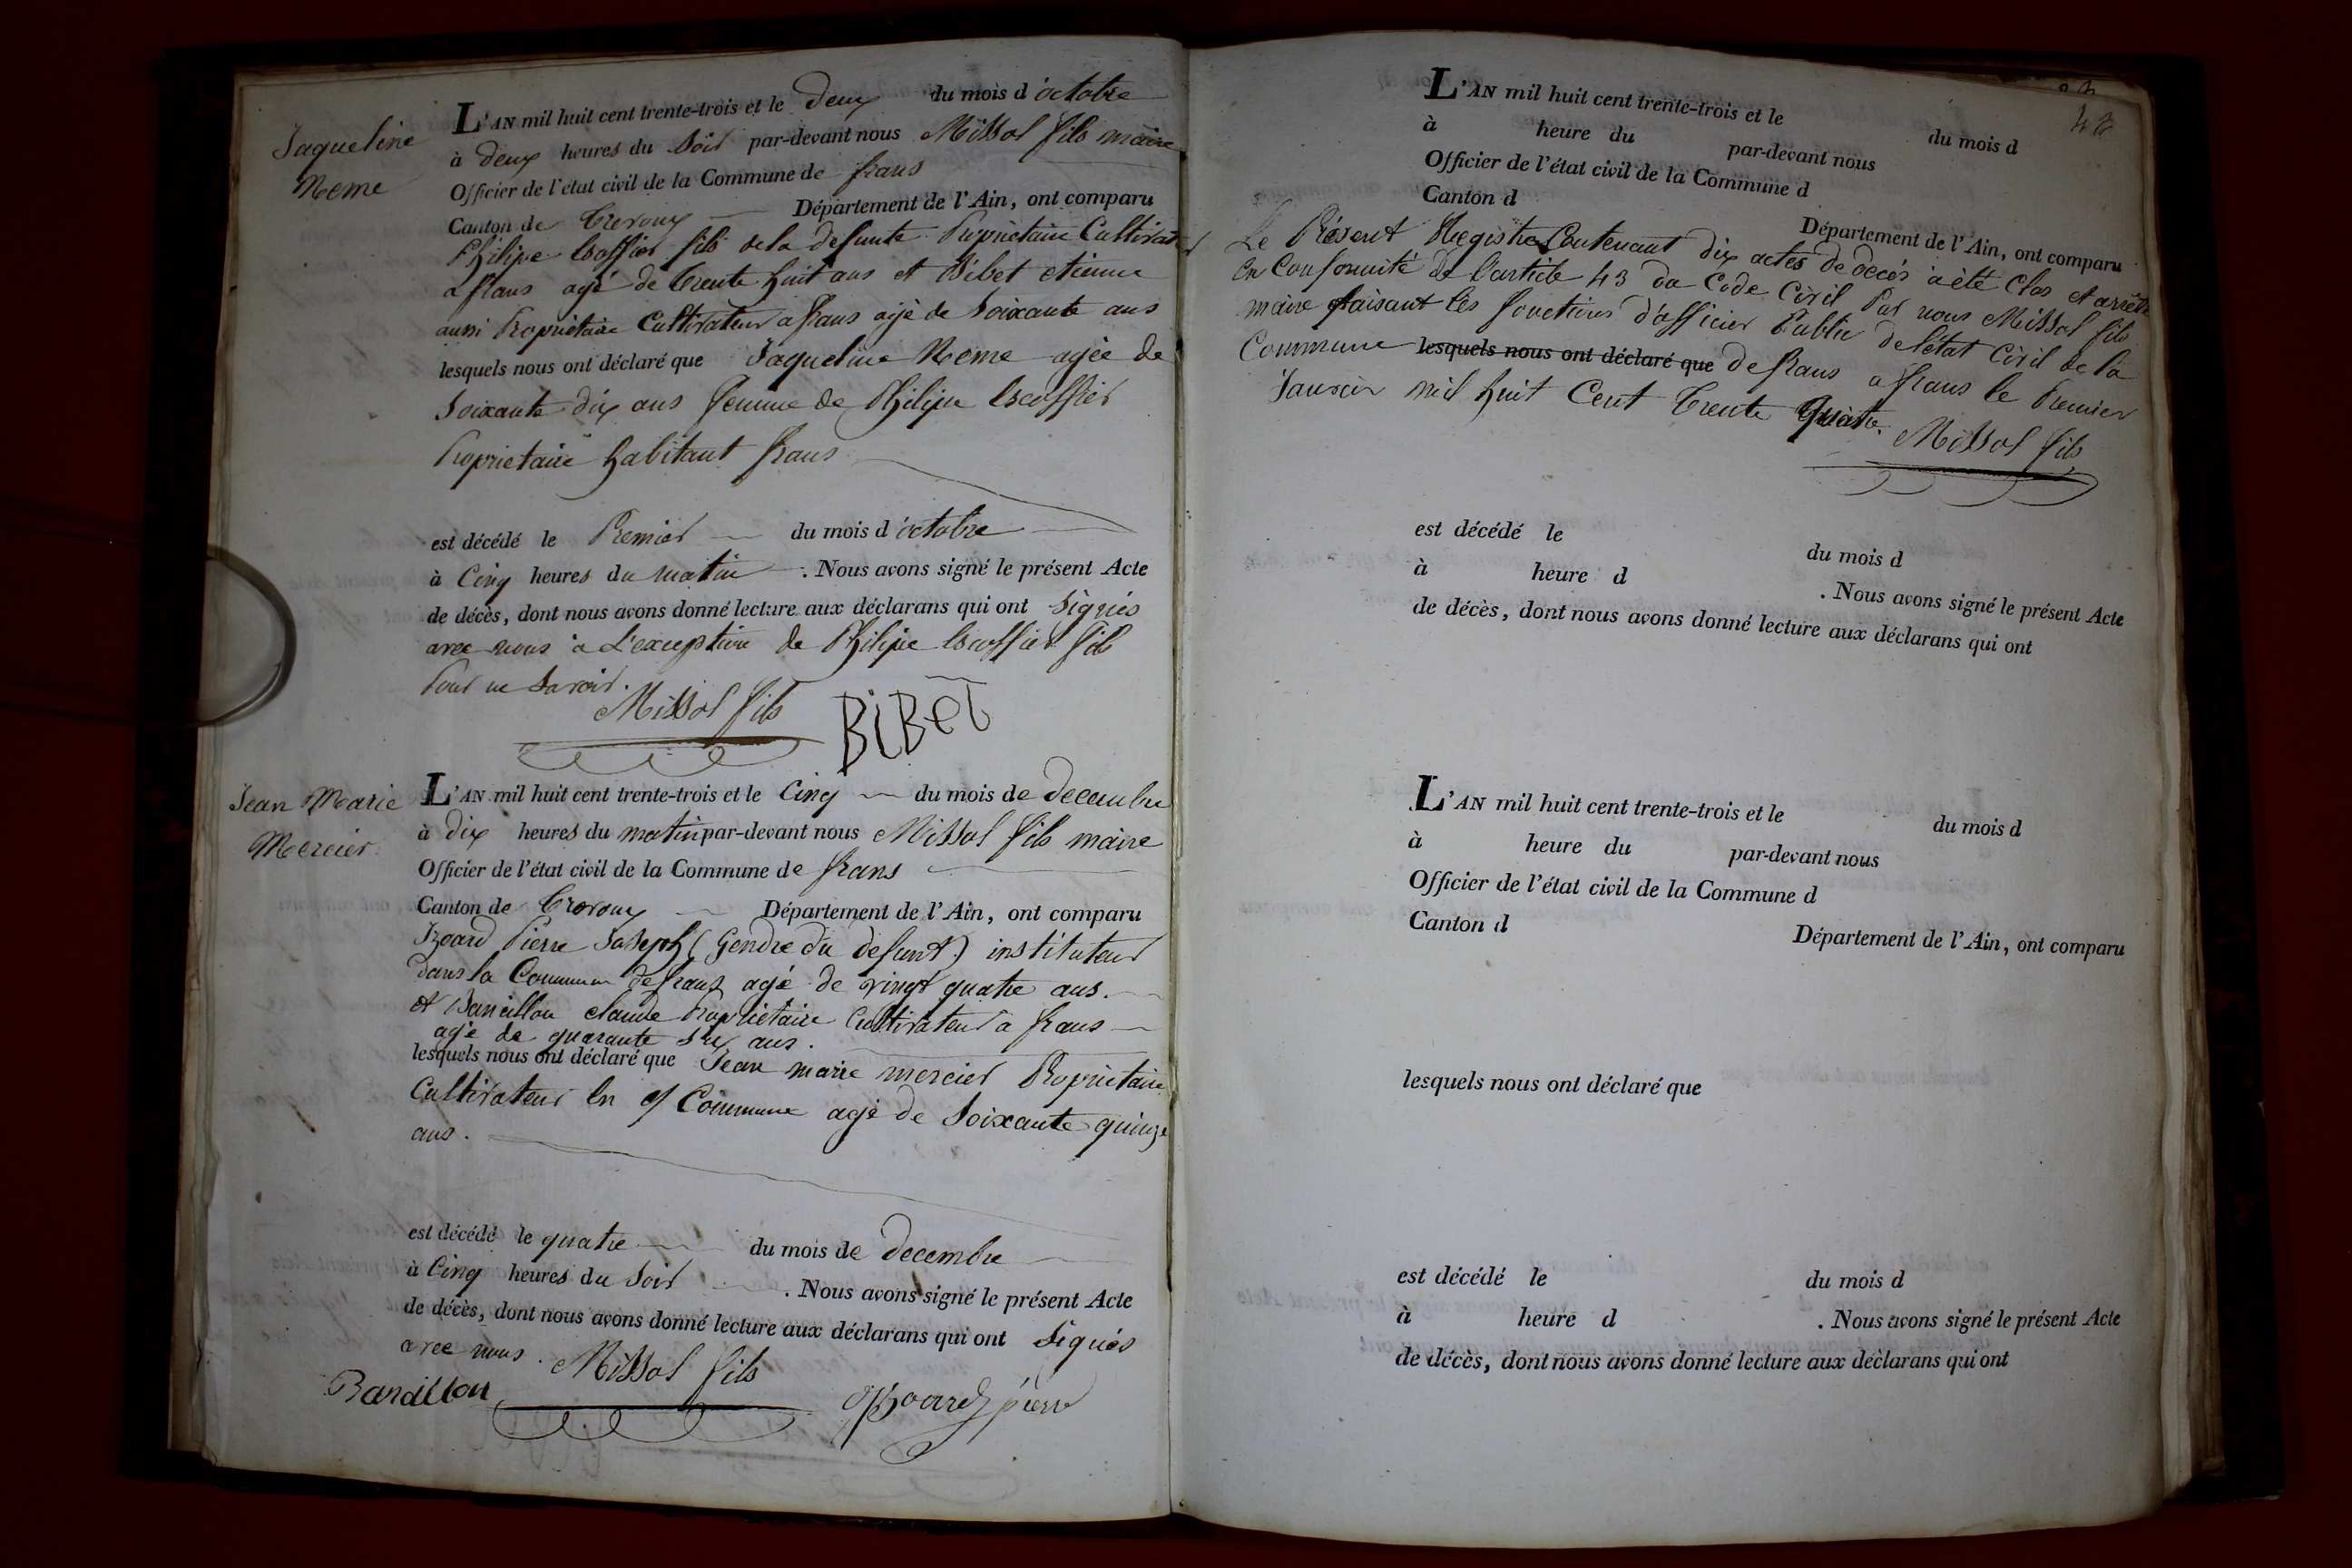 Jaqueline
Neme
L'AN mil huit cent trente-trois et le deux du mois d'octobre
à deux heures du soir par-devant nous Missol fils maire
Officier de l'état civil de la Commune de frans
Canton de Trevoux Département de l'Ain, ont comparu
Philipe Escoffier fils de la defunte Propriètaire Cultivateur
a frans agé de trente huit ans et Bibet etienne
aussi Propriètaire Cultivateur a frans agé de Soixante ans
lesquels nous ont déclaré que Jaqueline Neme agée de
Soixante dix ans femme de Philipe Escoffier
Propriètaire habitant frans
est décédé le Premier du mois d'octobre
à Cinq heures du matin . Nous avons signé le présent Acte
de décès, dont nous avons donné lecture aux déclarans qui ont Signés
avec nous à L'exception de Philipe Escoffier fils
Pour ne Savoir.
Missol fils BiBet
Jean Marie
Mercier
L'AN mil huit cent trente-trois et le Cinq du mois de decembre
à dix heures du matin par-devant nous Missol fils maire
Officier de l'état civil de la Commune de frans
Canton de Trevoux Département de l'Ain, ont comparu
Izoard Pierre Joseph (Gendre du defunt) instituteur
dans la Commune de frans agé de vingt quatre ans.
et Baneillon claude Propriètaire Cultivateur a frans
agé de quarante six ans.
lesquels nous ont déclaré que Jean marie mercier Propriètaire
Cultivateur en Commune agé de Soixante quinze
ans.
est décédé le quatre du mois de decembre
à Cinq heures du Soir . Nous avons signé le présent Acte
de décès, dont nous avons donné lecture aux déclarans qui ont Signés
avec nous. Missol fils
pierre
L'AN mil huit cent trente-trois et le du mois d
à heure du par-devant nous
Officier de l'état civil de la Commune d
Canton d Département de l'Ain, ont comparu
Le Présent Registre Contenant dix actes de decés a été Clos et arrêté
en Conformité de l'article 43 du Code Civil Par nous Missol fils
maire faisant les fonctions d'officier Public de l'état Civil de la
Commune lesquels nous ont déclaré que de frans a frans le Premier
Janvier mil huit Cent Trente Quatre.
Missol fils
est décédé le du mois d
à heure d . Nous avons signé le présent Acte
de décès, dont nous avons donné lecture aux déclarans qui ont
L'AN mil huit cent trente-trois et le du mois d
à heure du par-devant nous
Officier de l'état civil de la Commune d
Canton d Département de l'Ain, ont comparu
lesquels nous ont déclaré que
est décédé le du mois d
à heure d . Nous avons signé le présent Acte
de décès, dont nous avons donné lecture aux déclarans qui ont